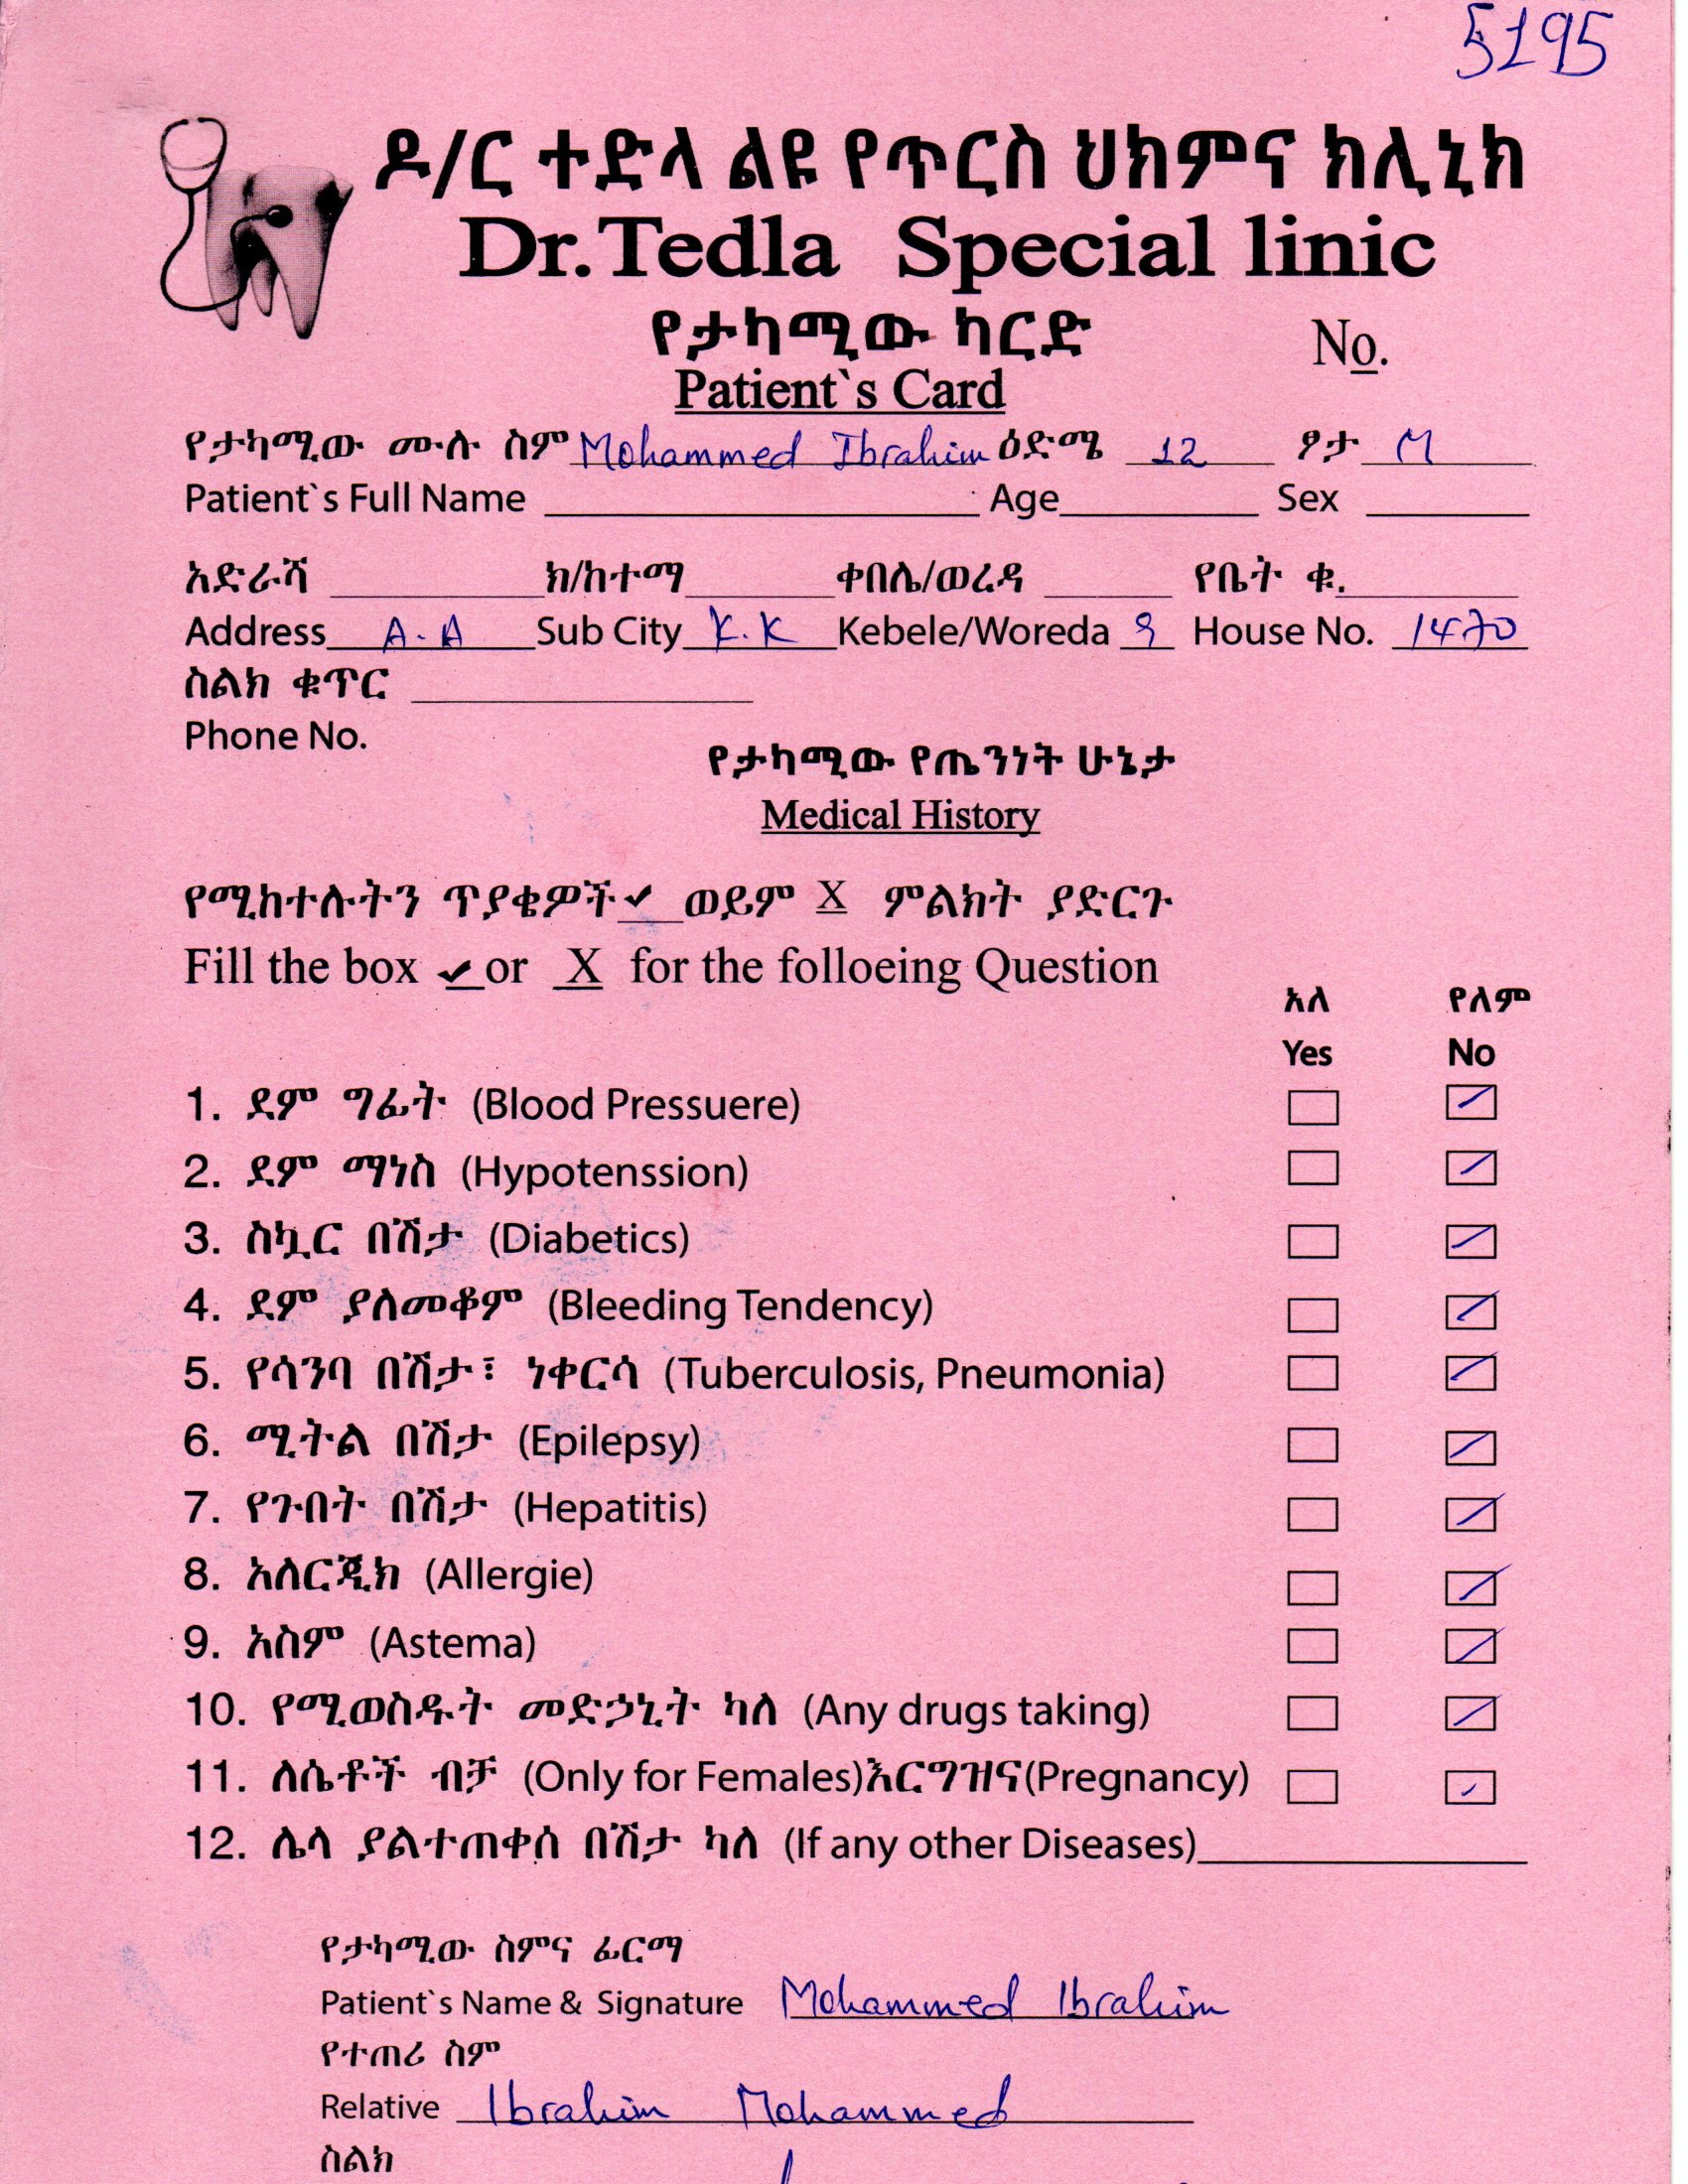 5195
ዶ/ር ተድላ ልዩ የጥርስ ህክምና ክሊኒክ
Dr.Tedla Special linic
የታካሚው ካርድ
No.
Patient`s Card
የታካሚው ሙሉ ስም Mohammed Ibrahim ዕድሜ 12 ፆታ M
Patient`s Full Name Age Sex
አድራሻ ክ/ከተማ ቀበሌ/ወረዳ የቤት ቁ.
Address A.A Sub City K.K Kebele/Woreda 9 House No. 1470
ስልክ ቁጥር
Phone No.
የታካሚው የጤንነት ሁኔታ
Medical History
የሚከተሉትን ጥያቄዎች ✓ ወይም X ምልክት ያድርጉ
Fill the box ✓ or X for the folloeing Question
አለ የለም
Yes No
1. ደም ግፊት (Blood Pressuere)
2. ደም ማነስ (Hypotenssion)
3. ስኳር በሽታ (Diabetics)
4. ደም ያለመቆም (Bleeding Tendency)
5. የሳንባ በሽታ፣ ነቀርሳ (Tuberculosis, Pneumonia)
6. ሚትል በሽታ (Epilepsy)
7. የጉበት በሽታ (Hepatitis)
8. አለርጂክ (Allergie)
9. አስም (Astema)
10. የሚወስዱት መድኃኒት ካለ (Any drugs taking)
11. ለሴቶች ብቻ (Only for Females)እርግዝና(Pregnancy)
12. ሌላ ያልተጠቀሰ በሽታ ካለ (If any other Diseases)
የታካሚው ስምና ፊርማ
Patient`s Name & Signature Mohammed Ibrahim
የተጠሪ ስም
Relative Ibrahim Mohammed
ስልክ